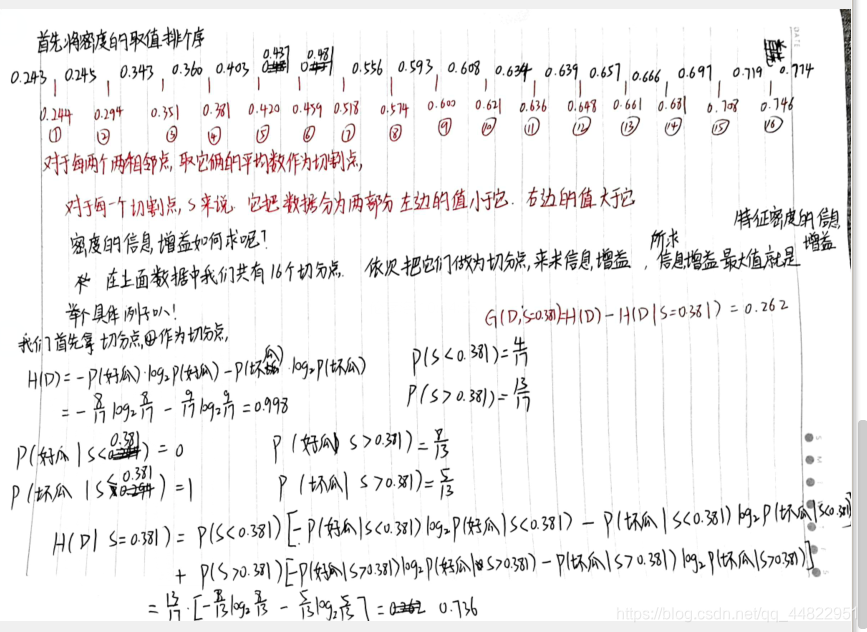 首先将密度的取值排个序
0.437 0.481
0.243 0.245 0.343 0.360 0.403 0.556 0.593 0.608 0.634 0.639 0.657 0.666 0.697 0.719 0.774
0.244 0.294 0.351 0.381 0.420 0.459 0.518 0.574 0.600 0.621 0.636 0.648 0.661 0.681 0.708 0.746
① ② ③ ④ ⑤ ⑥ ⑦ ⑧ ⑨ ⑩ ⑪ ⑫ ⑬ ⑭ ⑮ ⑯
对于每两个两相邻点,取它俩的平均数作为切割点,
对于每一个切割点,S来说.它把数据分为两部分 左边的值小于它.右边的值大于它
密度的信息增益如何求呢?
在上面数据中我们共有16个切分点. 依次把它们做为切分点,来求信息增益,所求信息增益最大值就是特征密度的信息增益
举个具体例子叭!
G(D,S=0.381)=H(D)-H(D|S=0.381)=0.262
我们首先拿切分点④作为切分点,
H(D)=-P(好瓜)·log₂P(好瓜)-P(坏瓜)·log₂P(坏瓜)
P(S<0.381)=4/17
=-8/17log₂8/17-9/17log₂9/17=0.998
P(S>0.381)=13/17
P(好瓜|S<0.381)=0
P(好瓜|S>0.381)=8/13
P(坏瓜|S<0.381)=1
P(坏瓜|S>0.381)=5/13
H(D|S=0.381)=P(S<0.381)[-P(好瓜|S<0.381)log₂P(好瓜|S<0.381)-P(坏瓜|S<0.381)log₂P(坏瓜|S<0.381)]
+P(S>0.381)[-P(好瓜|S>0.381)log₂P(好瓜|S>0.381)-P(坏瓜|S>0.381)log₂P(坏瓜|S>0.381)]
=13/17·[-8/13log₂8/13-5/13log₂5/13]=0.736
https://blog.csdn.net/qq_44822951